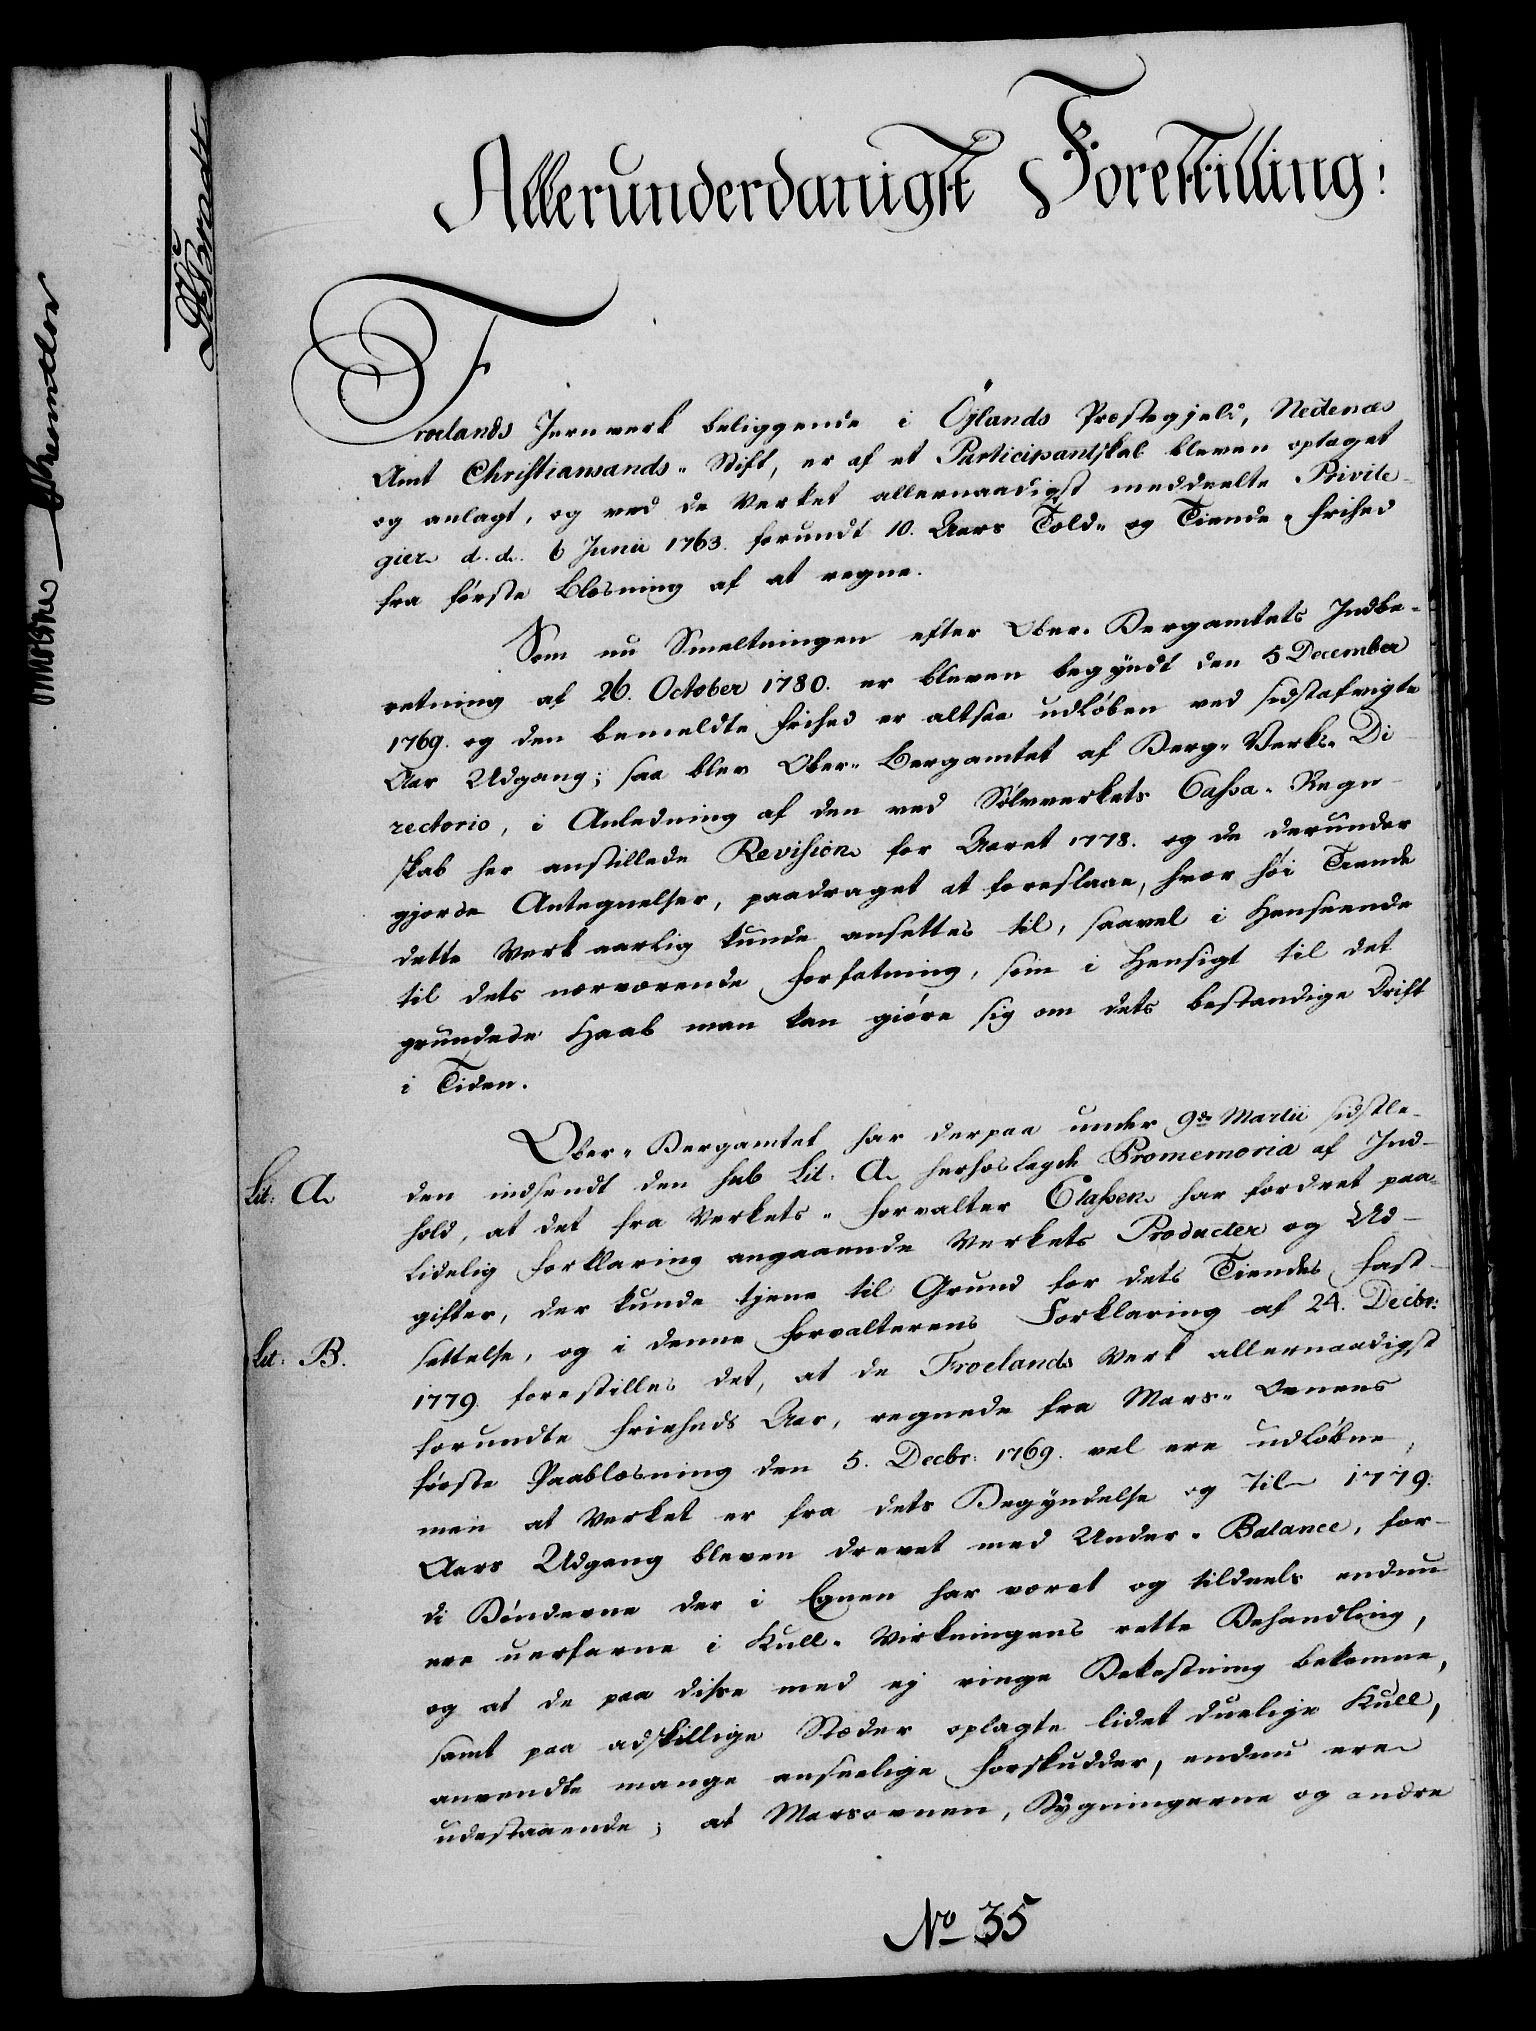 Allerunderdanigst Forestilling:
Froelands Jernverk beliggende i Øjlands Præstegjeld, Nedenæs
Amt Christiansands-Stift, er af et Participantskab bleven optaget
og anlagt, og ved de Verket allernaadigst meddeelte Privile-
gier d. d. 6 Junii 1763. forundt 10. Aars Told- og Tiende-frihed
fra første Blæsning af at regne.
Som nu Smeltningen efter Ober-Bergamtets Indbe-
retning af 26. October 1780. er bleven begyndt den 5 December
1769. og den bemeldte frihed er altsaa udløben ved sidstafvigte
Aar Udgang; saa blev Ober-Bergamtet af Berg-Verks-Di-
rectorio, i Anledning af den ved Sølvverkets Cassa-Regn-
skab her anstillede Revision for Aaret 1778. og de derunder
gjorde Antegnelser, paadraget at foreslaae, hvor høi Tiende
dette Verk aarlig kunde ansettes til, saavel i Henseende
til dets nærværende forfatning, som i Hensigt til det
grundede Haab man kan giøre sig om dets bestandige Drift
i Tiden.
Ober-Bergamtet har derpaa under 9de Martii sidstle-
Lit: A. den indsendt den sub Lit. A. herhoslagde Promemoria af Ind-
hold, at det fra Verkets-forvalter Claßen har fordret paa-
lidelig forklaring angaaende Verkets Producter og Ud-
gifter, der kunde tjene til Grund for dets Tiendes fast-
Lit: B. settelse, og i denne forvalterens Forklaring af 24. Decbr:
1779. forestilles det, at de Froelands Verk allernaadigst
forundte friheds Aar, regnede fra Mars-Ovnens
første Paablæsning den 5. Decbr: 1769. vel ere udløbne,
men at Verket er fra dets Begyndelse og til 1779.
Aars Udgang bleven drevet med Under-Balance, for-
di Bønderne der i Egnen har været og tildeels endnu
ere uerfarne i Kull-Virkningens rette Behandling,
og at de paa disse med ej ringe Bekostning bekomne,
samt paa adskillige Stæder oplagte lidet duelige Kull,
anvendte mange anseelige forskudder, endnu ere
udestaaende; at Marsovnen, Bygningerne og andre
No 35